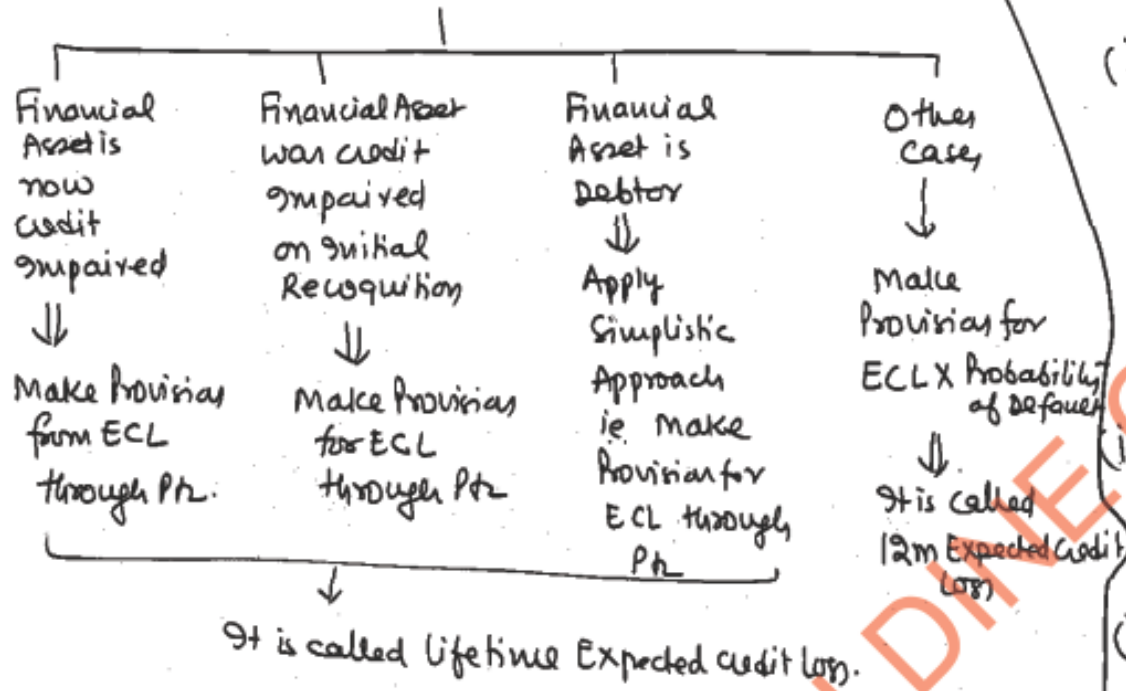 Financial
Asset is
now
credit
Impaired
Make Provision
from ECL
through P/L.
Financial Asset
was credit
Impaired
on Initial
Recognition
Make Provision
for ECL
through P/L
Financial
Asset is
Debtor
Apply
Simplistic
Approach
ie Make
Provision for
ECL through
P/L
Other
Cases
Make
Provision for
ECL X Probability
of Default
It is called
12m Expected Credit
Loss
It is called Lifetime Expected Credit Loss.
DINE